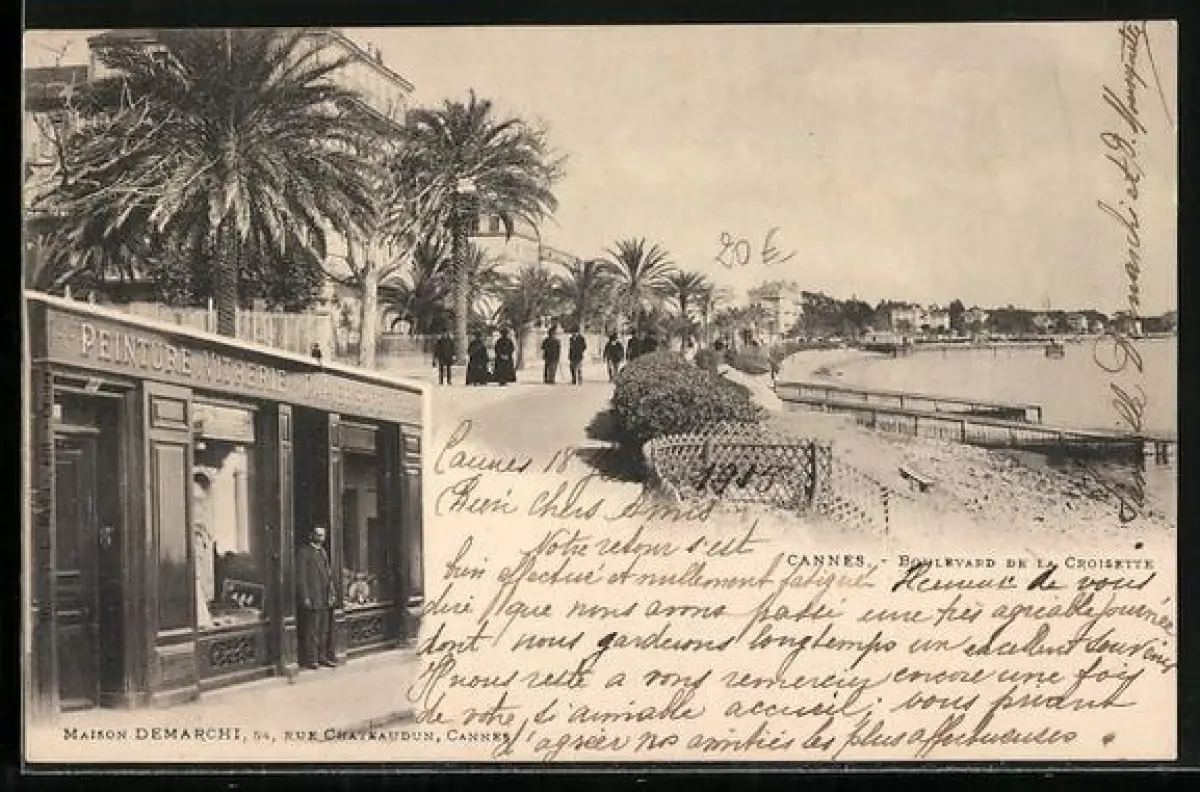 PEINTURE VITRERIE
20 €
Cannes 18
1915
Bien Chers Amis
Notre retour s'est
CANNES. - BOULEVARD DE LA CROISETTE
bien effectué et nullement fatigué Heureux de vous
dire que nous avons passé une très agréable journée
dont nous garderons longtemps un excellent souvenir
Il nous reste a vous remercier encore une fois
de votre si aimable accueil, vous priant
d'agréer nos amitiés les plus affectueuses
MAISON DEMARCHI, 54, RUE CHATEAUDUN, CANNES
Demarchi et